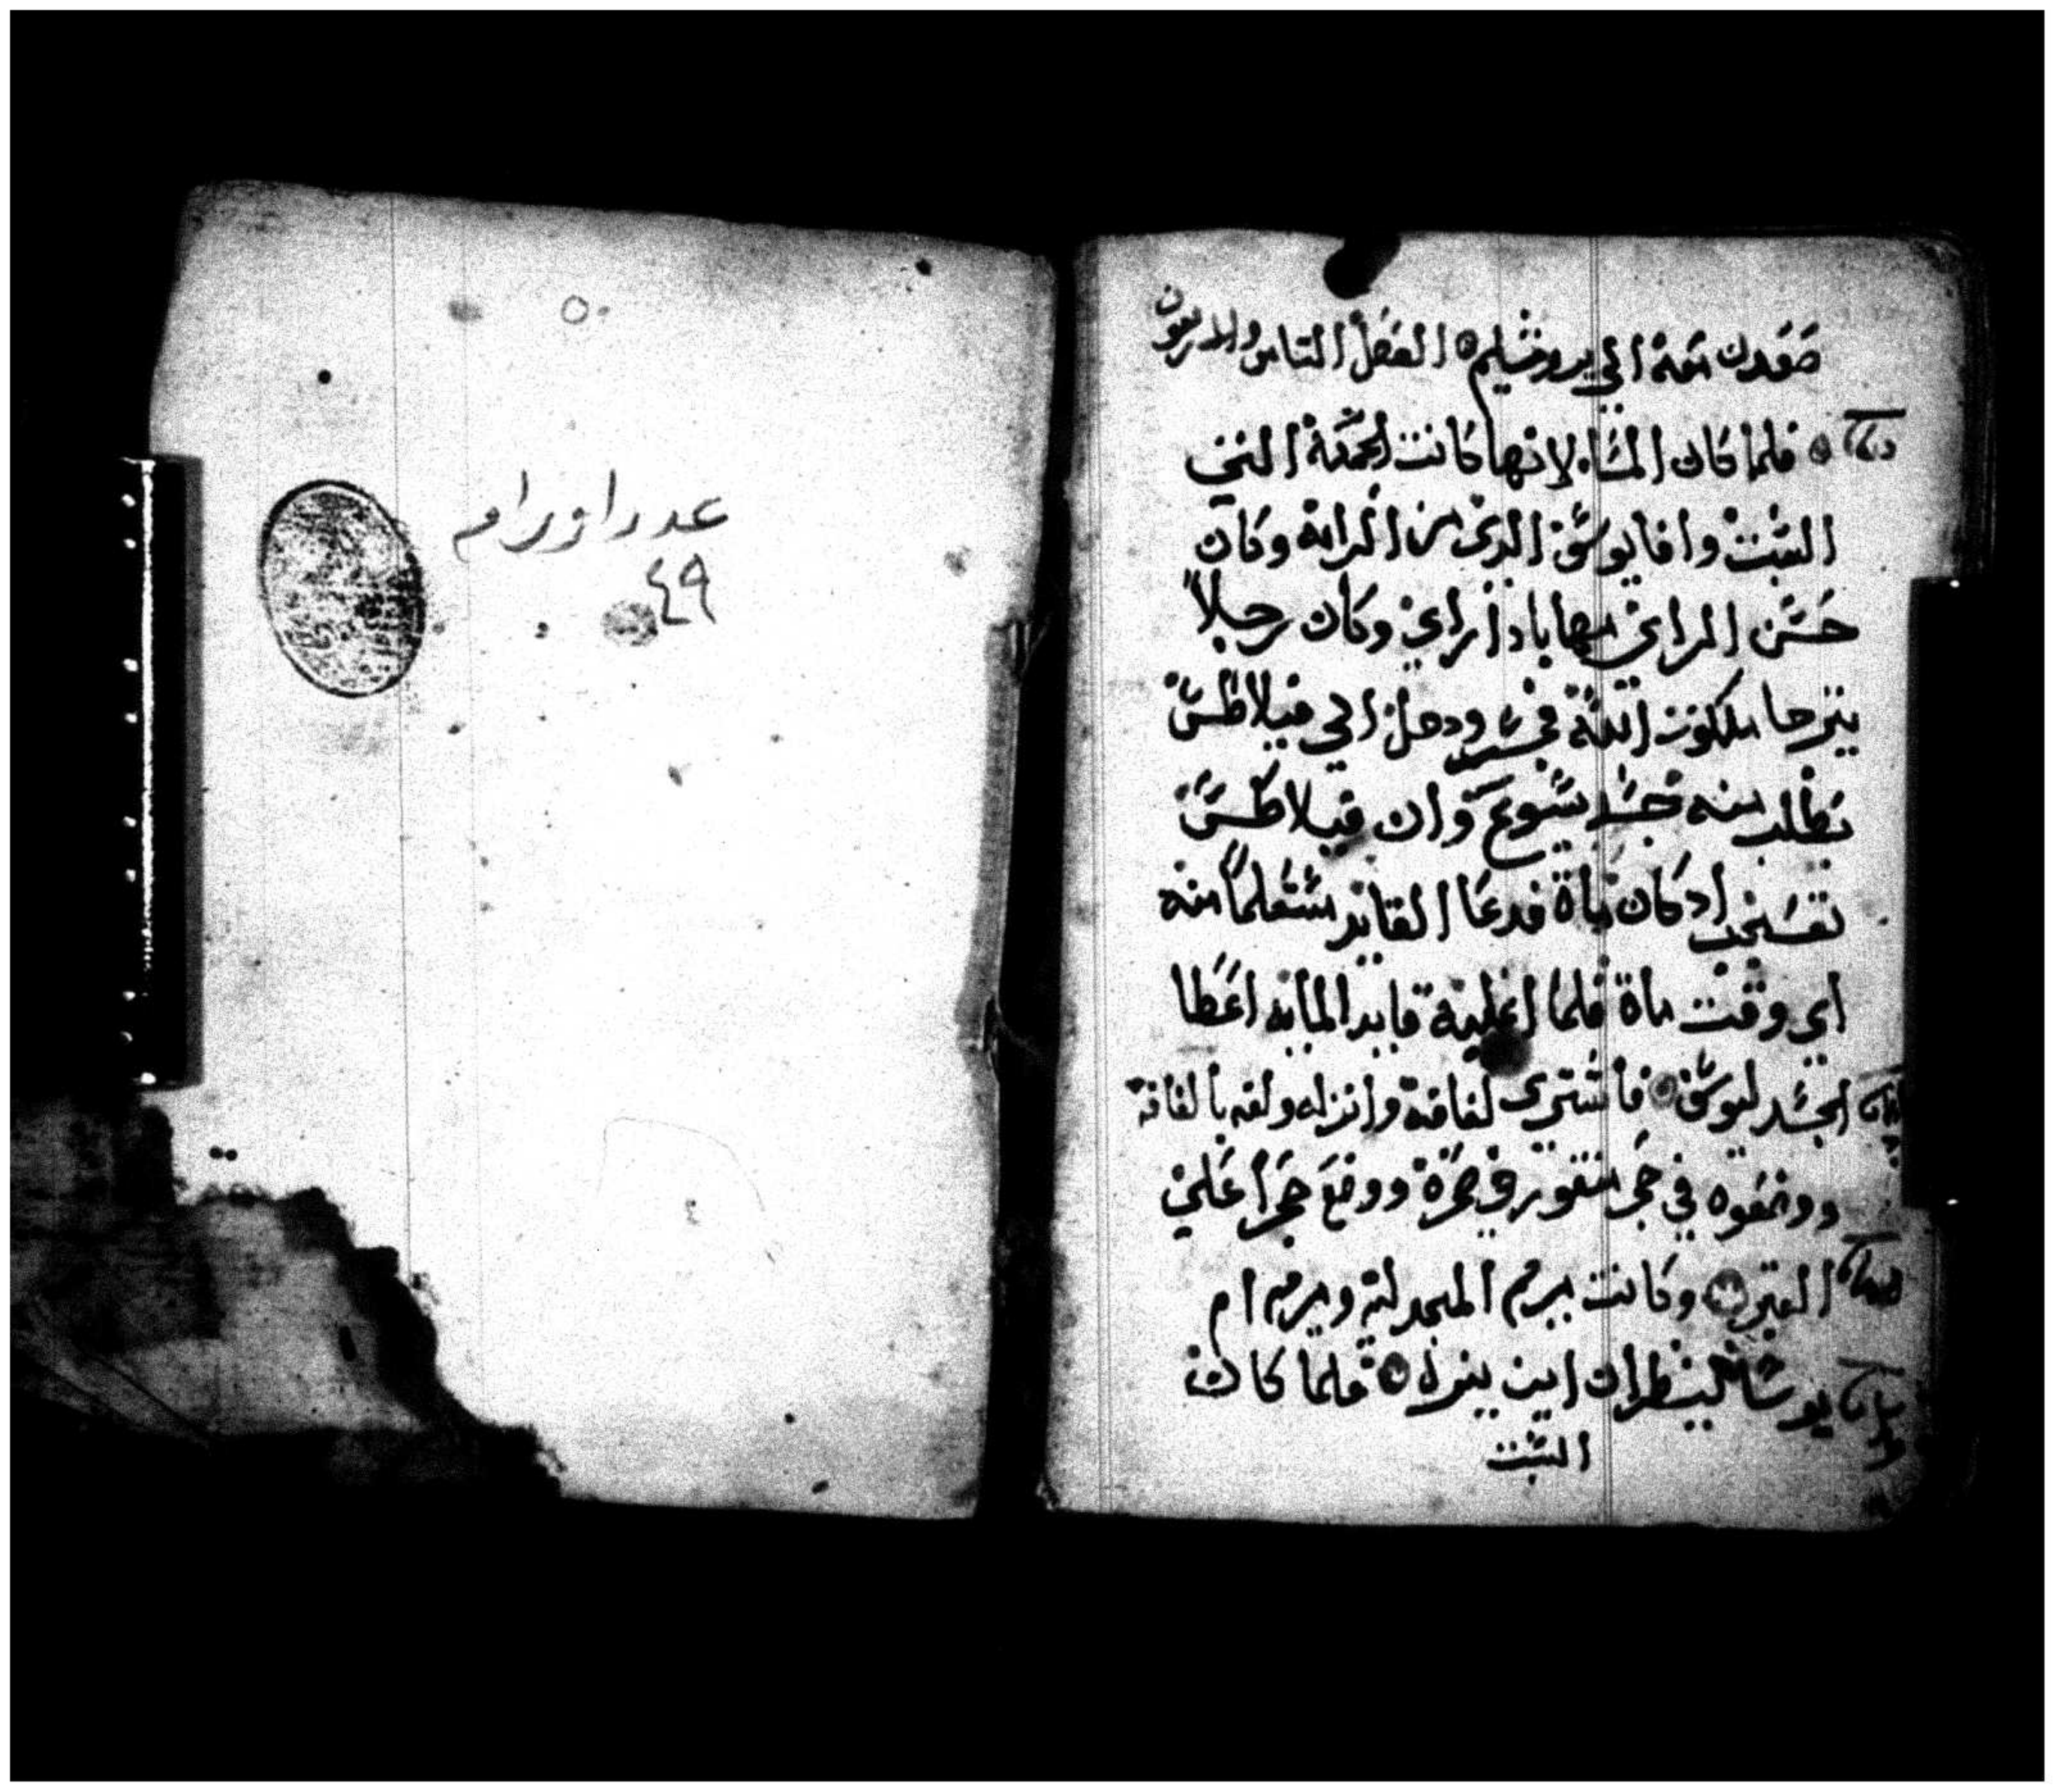 صعدن معه الي يروشليم الفصل التامن والاربعون
فلما كان المسَا لانها كانت الجمعة التي
السَبت وافا يوسَف الدي من الرامة وكان
حسَن المراي مهابا دا راي وكان رجلاً
يترجا ملكوت الله فجسَر ودخل الي فيلاطسَ
يطلب منه جسَد يسَوع وان فيلاطسَ
تعجب اد كان مات فدعا القايد مستعلماً منه
اي وقت مات فلما اعلمه قايد المايه اعطا
الجسَد ليوسَف فاشتري لفافة وانزله ولفه بالفافة
ووضعوه في حجر منقور في صخرة ووضع حجراً علي
القبر وكانت مريم المجدلية ومريم ام
يوسَا لينظران اين يترك فلما كان
السَبت
٥٠
عدد اوراق
٤٩